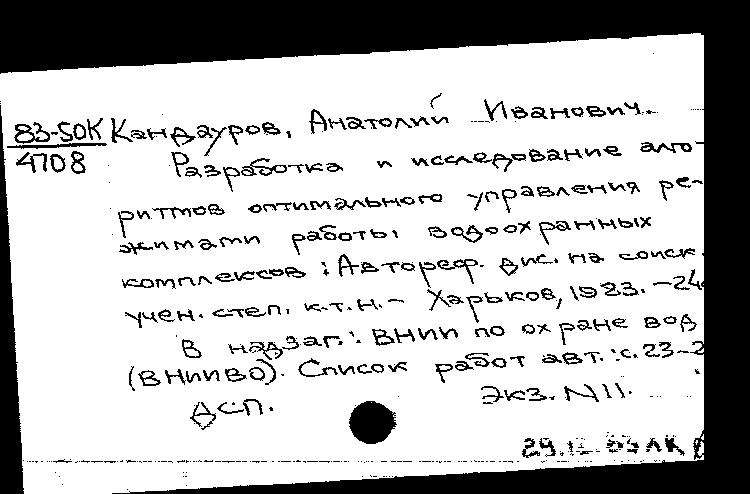 83-50К Кандауров, Анатолий Иванович.
4708
Разработка и исследование алго-
ритмов оптимального управления ре-
жимами работы водоохранных
комплексов : Автореф. дис. на соиск.
учен. степ. к.т.н. - Харьков, 1983. - 24
В надзаг.: ВНИИ по охране вод
(ВНИИВО). Список работ авт.: с. 23-2
ДСП. Экз. N 11.